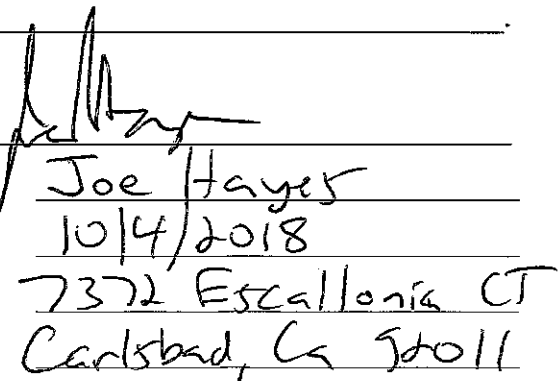 Joe Hayes
10/4/2018
7372 Escallonia CT
Carlsbad, Ca 92011